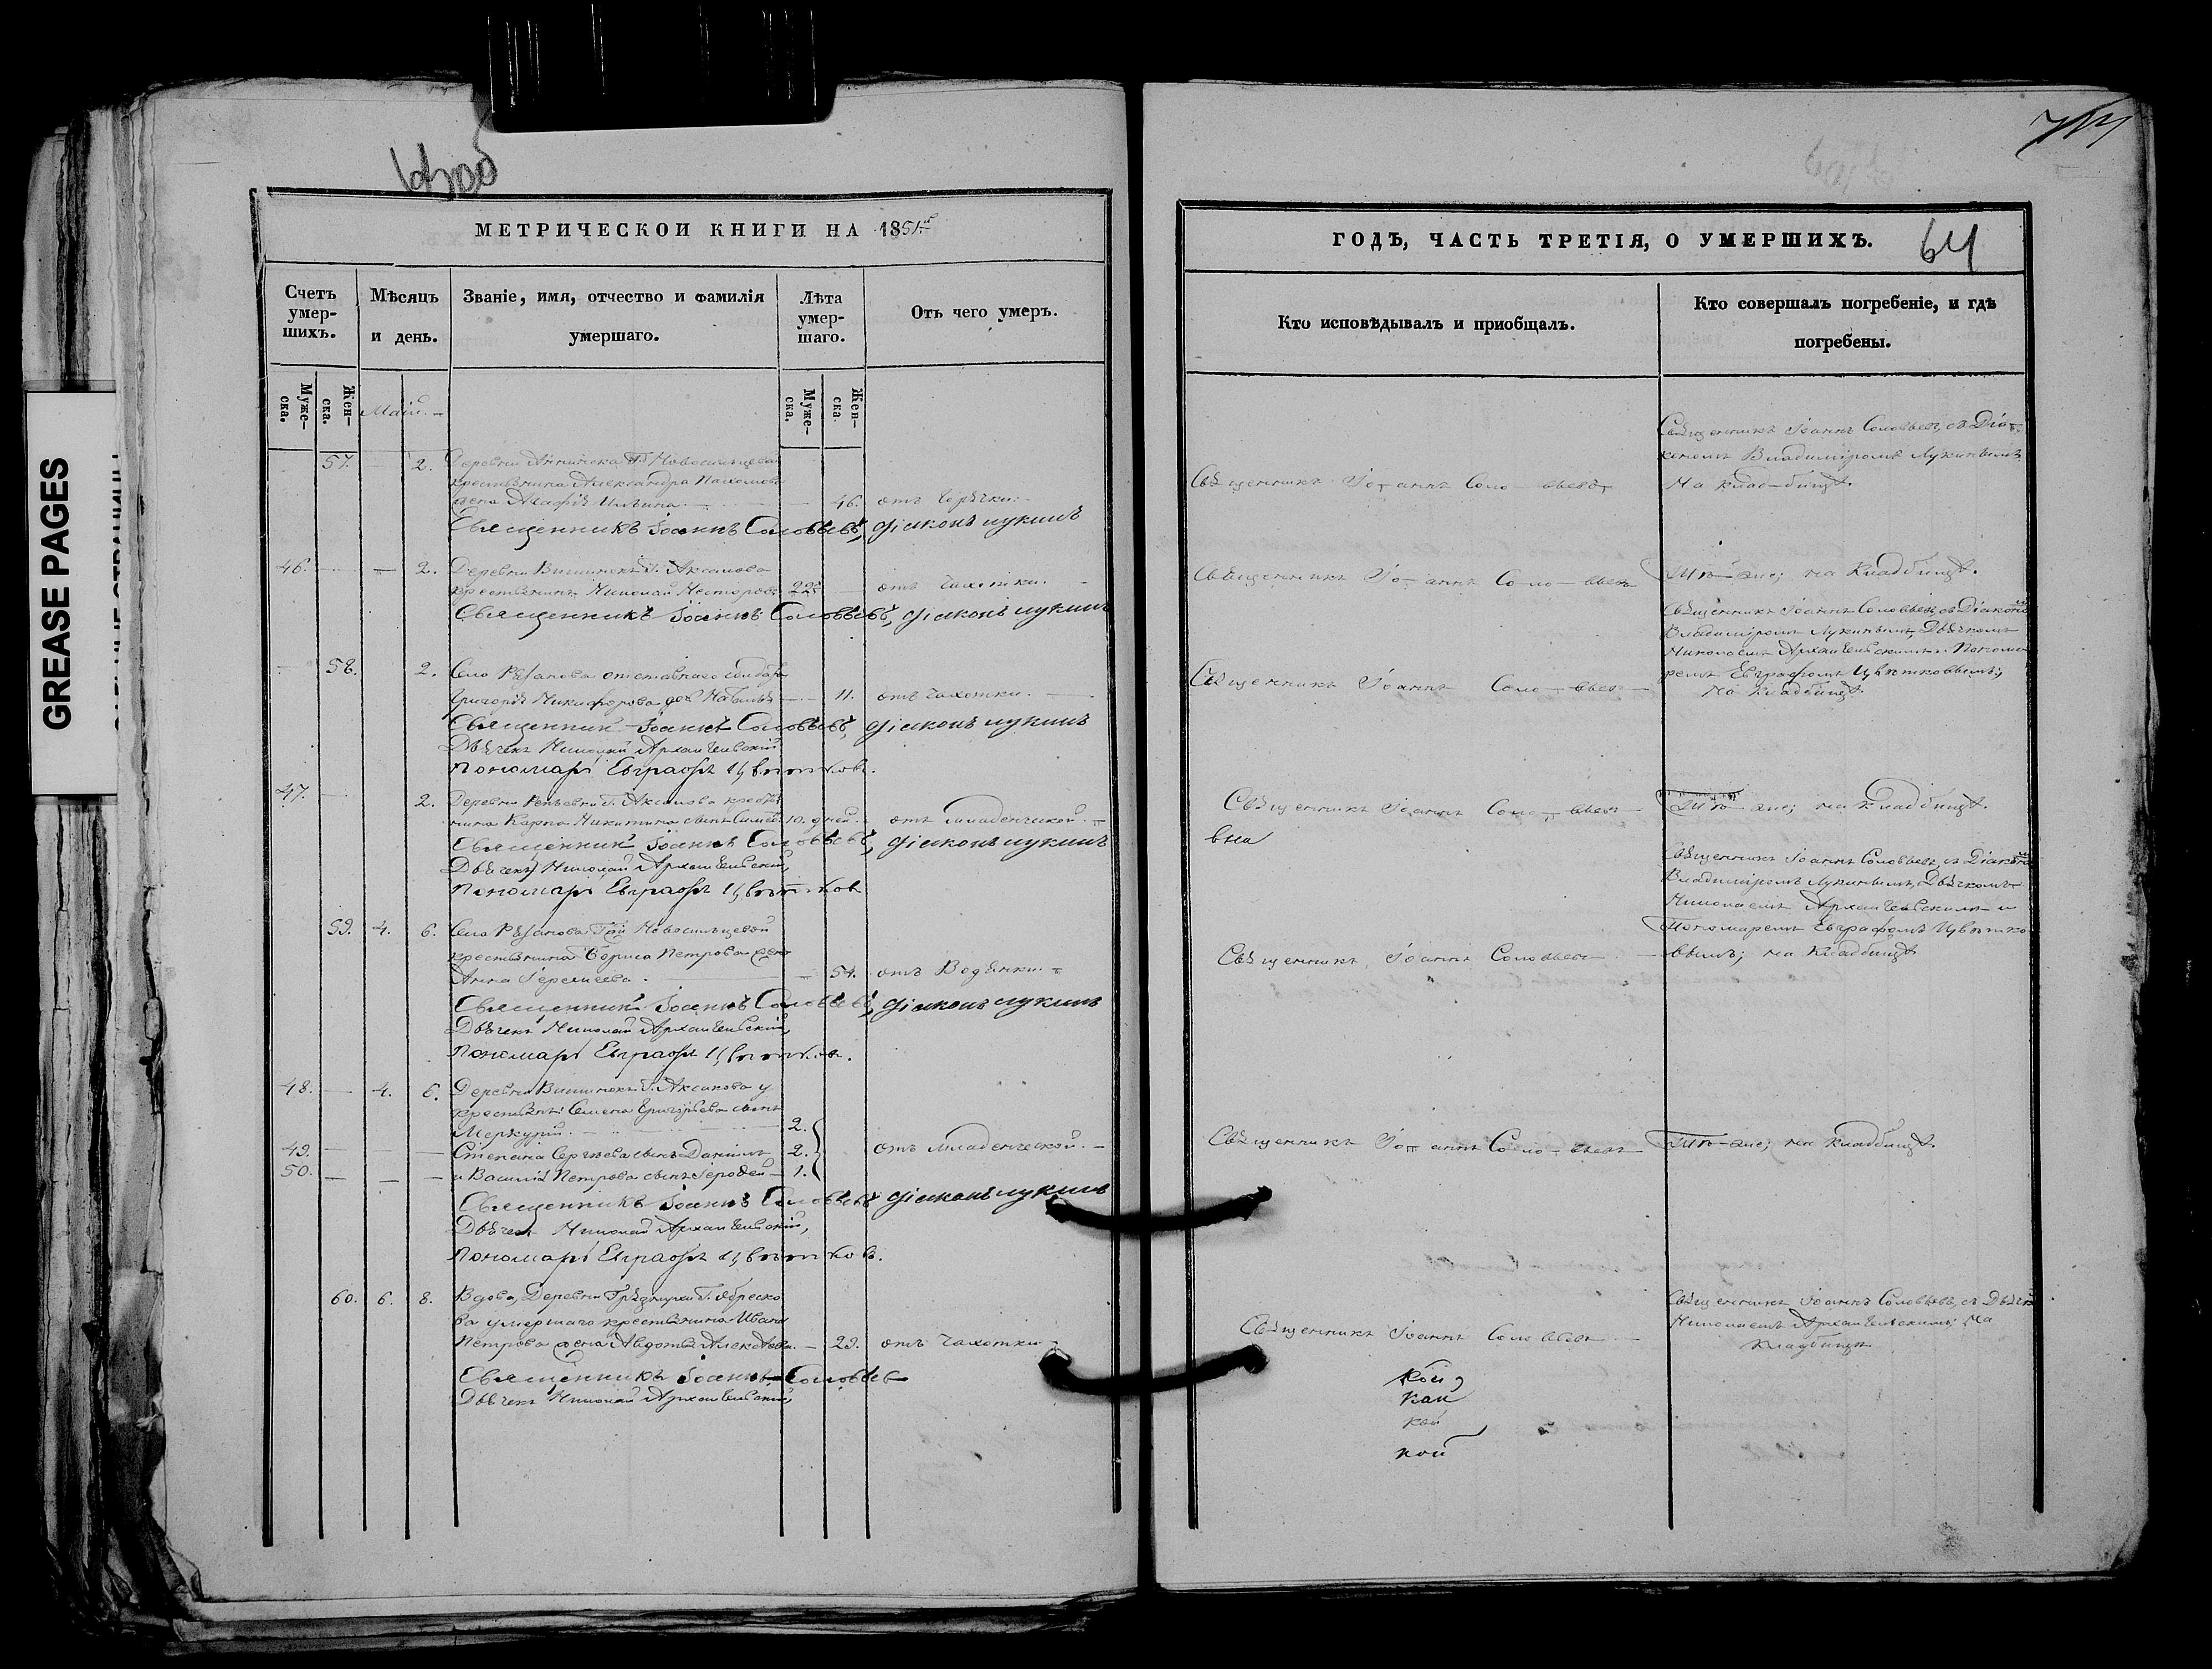 GREASE PAGES
МЕТРИЧЕСКОИ КНИГИ НА 1851й
Счетъ умер-шихъ.
Мѣсяцъ и день.
Званіе, имя, отчество и фамилія умершаго.
Лѣта умер-шаго.
Отъ чего умеръ.
Муже-ска.
Жен-ска.
Муже-ска.
Жен-ска
Май.
57. — 2. Деревни Г. Новосильцева
крестьянина Александра Пахомова
жена Агафія Ильина. — 46. отъ горячки.
Священникъ Іоаннъ Соловьевъ, Діаконъ Лукинъ
46. — — 2. Деревни Г. Аксакова
крестьянинъ Николай Несторовъ 22. отъ чахотки.
Священникъ Іоаннъ Соловьевъ, Діаконъ Лукинъ
58. 2. Села Рязанова отставнаго солдата
Григорія Никифорова доч — 11. отъ чахотки.
Священникъ Іоаннъ Соловьевъ, Діаконъ Лукинъ
Дьячекъ Николай Архангельскій
Пономарь Евграфъ Цвѣтковъ.
47. — 2. Деревни Г. Аксакова крестья
нина Карпа Никитина сынъ 10. дней. отъ младенческой.
Священникъ Іоаннъ Соловьевъ, Діаконъ Лукинъ
Дьячекъ Николай Архангельскій,
Пономарь Евграфъ Цвѣтков
59. 4. 6. Села Рязанова Гжи Новосильцевой
крестьянина Бориса Петрова жена
Анна Геремеева. — 54. отъ Водянки.
Священникъ Іоаннъ Соловьевъ, Діаконъ Лукинъ
Дьячекъ Николай Архангельскій,
Пономарь Евграфъ Цвѣтков.
48. — 4. 6. Деревни Г. Аксакова у
крестьянъ: Семена Григорьева сынъ
Меркурій. — 2.
49. — — — Степана Сергѣева сынъ Даніилъ 2. отъ младенческой.
50. — — — и Василія Петрова сынъ — 1.
Священникъ Іоаннъ Соловьевъ Діаконъ Лукинъ
Дьячекъ Николай Архангельскій,
Пономарь Евграфъ Цвѣтковъ.
60. 6. 8. Вдова, Деревни Г. Обреско
ва умершаго крестьянина Ивана
Петрова жена Авдотья — 29. отъ чахотки.
Священникъ Іоаннъ Соловьев
Дьячекъ Николай Архангельскій,
ГОДЪ, ЧАСТЬ ТРЕТІЯ, О УМЕРШИХЪ. 64
Кто исповѣдывалъ и приобщалъ.
Кто совершалъ погребеніе, и гдѣ погребены.
Священникъ Іоаннъ Соловьевъ
Священникъ Іоаннъ Соловьевъ, съ Діа-
кономъ Владиміромъ Лукинымъ,
на кладбищѣ.
Священникъ Іоаннъ Соловьевъ
Тѣ-же; на кладбищѣ.
Священникъ Іоаннъ Соловьевъ
Священникъ Іоаннъ Соловьевъ, съ Діакономъ
Владиміромъ Лукинымъ, Дьячкомъ
Николаемъ Архангельскимъ и Понома
ремъ Евграфомъ Цвѣтковымъ;
на кладбищѣ.
Священникъ Іоаннъ Соловьевъ
вна
Тѣ-же; на кладбищѣ.
Священникъ Іоаннъ Соловьевъ
Священникъ Іоаннъ Соловьевъ, съ Діакономъ
Владиміромъ Лукинымъ, Дьячкомъ
Николаемъ Архангельскимъ и
Пономаремъ Евграфомъ Цвѣтко
вымъ; на кладбищѣ
Священникъ Іоаннъ Соловьевъ
Тѣ-же; на кладбищѣ.
Священникъ Іоаннъ Соловьевъ
Священникъ Іоаннъ Соловьевъ, съ Дьячк
Николаемъ Архангельскимъ; на
кладбищѣ
кой
кай
кой
кой